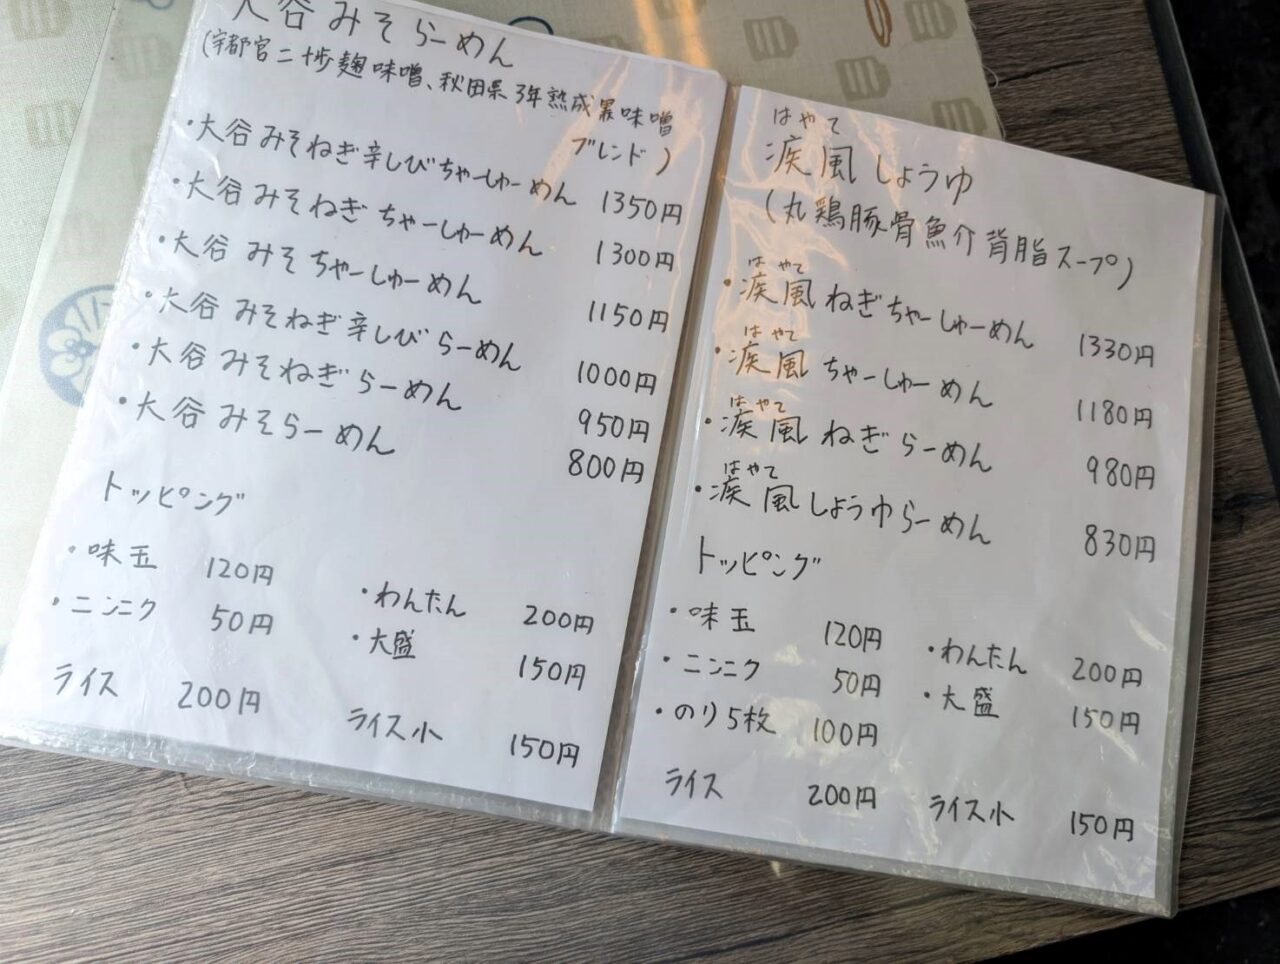 大谷みそらーめん
(宇都宮二十歩麹味噌、秋田県3年熟成黒味噌
ブレンド)
・大谷みそねぎ辛しびちゃーしゅーめん 1350円
・大谷みそねぎちゃーしゅーめん 1300円
・大谷みそちゃーしゅーめん 1150円
・大谷みそねぎ辛しびらーめん 1000円
・大谷みそねぎらーめん 950円
・大谷みそらーめん 800円
トッピング
・味玉 120円 ・わんたん 200円
・ニンニク 50円 ・大盛 150円
ライス 200円 ライス小 150円
はやて
疾風しょうゆ
(丸鶏豚骨魚介背脂スープ)
はやて
・疾風ねぎちゃーしゅーめん 1330円
はやて
・疾風ちゃーしゅーめん 1180円
はやて
・疾風ねぎらーめん 980円
はやて
・疾風しょうゆらーめん 830円
トッピング
・味玉 120円 ・わんたん 200円
・ニンニク 50円 ・大盛 150円
・のり5枚 100円
ライス 200円 ライス小 150円